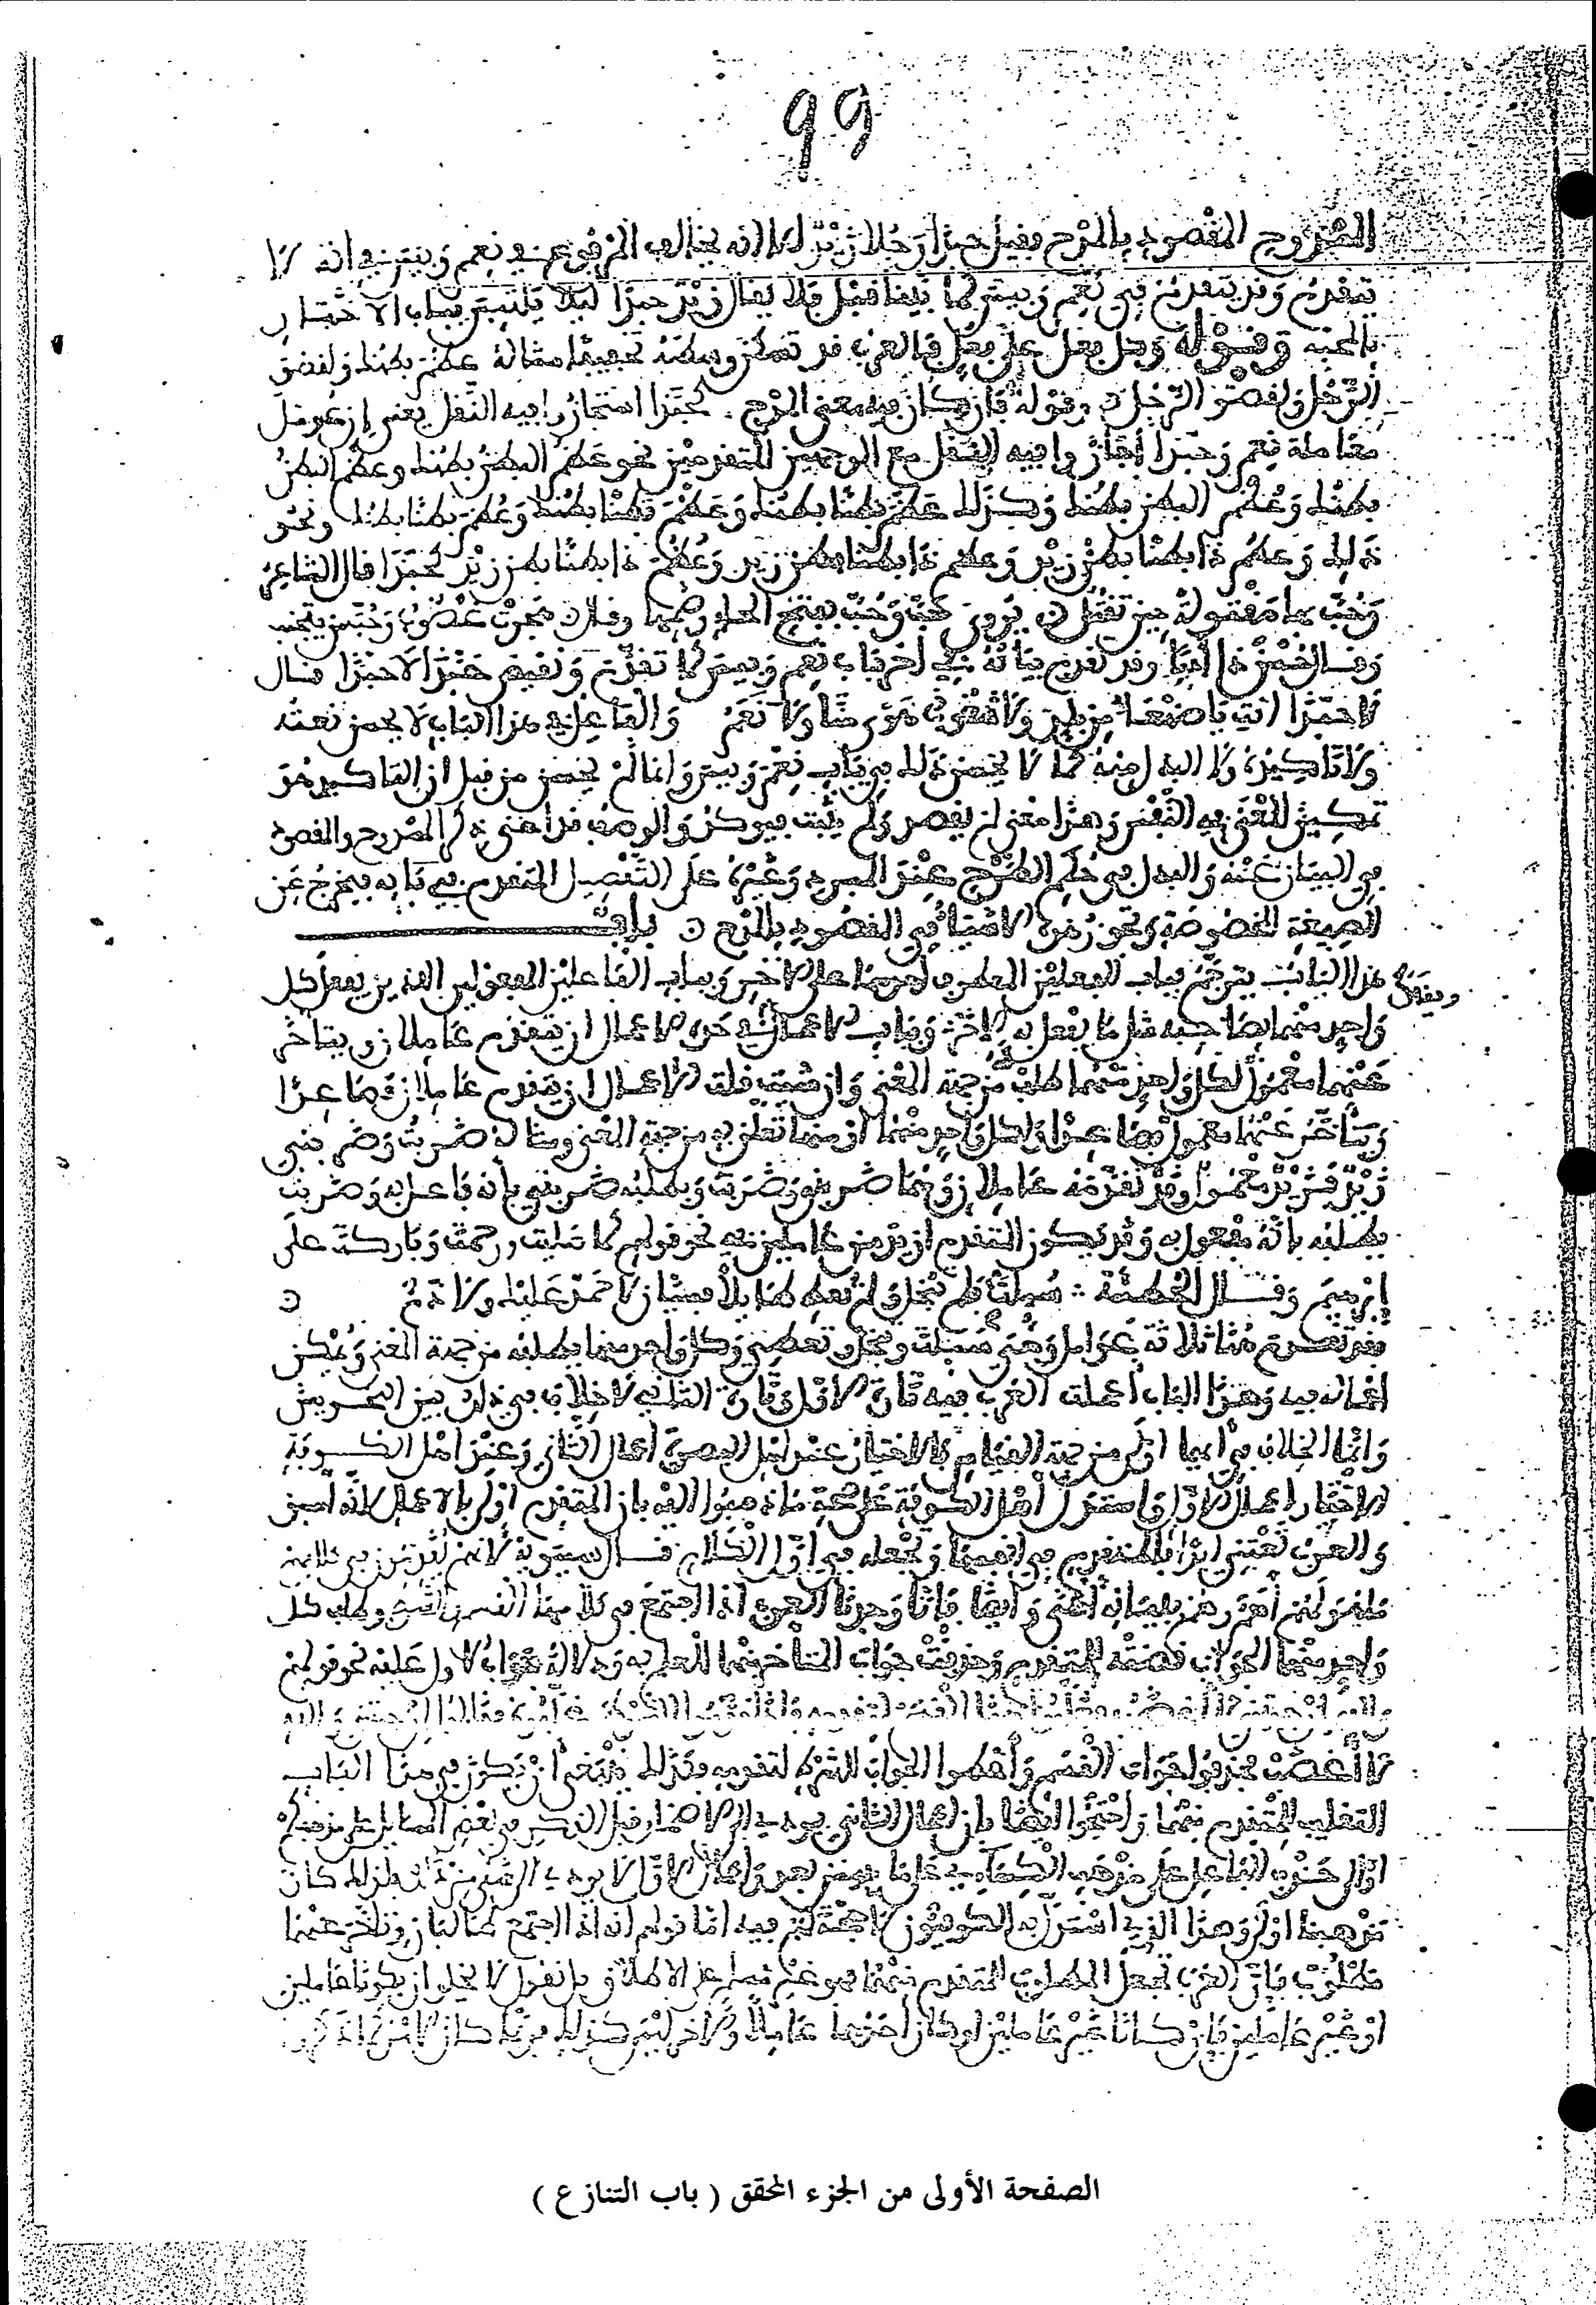 99
الممدوح المقصود بالمدح فيقال حبذا رجلا زيد الا انه يخالف المرفوع في نعم وبئس في انه لا
يتقدم وقد يتقدم في نعم وبئس كما بينا قبل فلا يقال زيد حبذا ليلا يلتبس بباب الاختبار
بالمحبة وقوله وكل فعل على فعل فالعرب قد تسكن وسطه تخفيفا مثاله
الرجل ولقضو الرجل وقوله فان كان فيه معنى المدح كحبذا استجازوا فيه النقل يعني ان عومل
معاملة نعم وحبذا اجازوا فيه النقل مع الوجهين المتقدمين نحو عظم البطن بطنك وعظم البطن
بطنك وعظم البطن بطنك وكذلك عظم بطنا بطنك وعظم بطنا بطنك وعظم بطنا بطنك ونحو
ذلك وعظم ذا بطنا بطن زيد وعظم ذا بطنا بطن زيد وعظم ذا بطنا بطن زيد كحبذا قال الشاعر
وحب بها مقتولة حين تقتل يروى حب وحب بفتح الحاء وضمها وقال هجرت غضوب وحب من يتجنب
وقال حسن ذا أدبا وقد تقدم بيانه في اخر باب نعم وبئس كما تقدم ونقيض حبذا لا حبذا قال
لا حبذا انت يا صنعاء من بلد ولا شعوب هوى منا ولا نقم والفاعل في هذا الباب لا يحسن نعته
ولا تاكيده ولا البدل منه كما لا يحسن ذلك في باب نعم وبئس وانما لم يحسن من قبل ان التاكيد هو
تمكين المعنى في النفس وهذا معنى لم يقصر ولم يثبت فيوكد والوصف قد اغنى ذكر الممدوح والمقصود
في البيان عنه والبدل في حكم الطرح عند المبرد وغيره على التفصيل المتقدم في بابه فيخرج عن
الصيغة المخصوصة وتجوز هذه الاشياء في المقصود بالمدح باب
هذا الباب يترجم بباب الفعلين المعطوف احدهما على الاخر وبباب الفاعلين المفعولين الذين يفعل كل
ويقال
واحد منهما بصاحبه مثل ما يفعل به الاخر وبباب الاعمال وحد الاعمال ان يتقدم عاملان ويتاخر
عنهما معمول لكل واحد منهما طلب من جهة المعنى وان شئت قلت الاعمال ان يتقدم عاملان فصاعدا
ويتأخر عنهما معمول فصاعدا ولكل واحد منهما او منها تعلق به من جهة المعنى ومثاله ضربت وضربني
زيد فزيد معمول وقد تقدمه عاملان وهما ضربني وضربت ويطلبه ضربني بأنه فاعل به وضربت
يطلبه بانه مفعول به وقد يكون المتقدم ازيد من عاملين نحو قولهم كما صليت ورحمت وباركت على
إبرهيم وقال الحطيئة سئلت فلم تبخل ولم تعط طائلا فسيان لا حمد عليك ولا ذم
فقد تقدم هنا ثلاثة عوامل وهي سئلت وتبخل وتعطي وكل واحد منها يطلبه من جهة المعنى ويمكن
اعماله فيه وهذا الباب أعملت العرب فيه تارة الاول وتارة الثاني لا خلاف في ذلك بين النحويين
وانما الخلاف في أيهما اولى من جهة القياس فالاختيار عند اهل البصرة أعمال الثاني وعند اهل الكوفة
الاختيار اعمال الاول واستدل أهل الكوفة على صحة ما ذهبوا اليه بان المتقدم اولى بالاعمال لانه اسبق
والعرب تعتني ابدا بالمتقدم في انفسها وتجعله في اول الكلام قال سيبويه لانهم يقدمون في كلامهم
ما هم به أهم وهم ببيانه أعنى وأيضا فإنا وجدنا العرب اذا اجتمع في كلامها القسم والشرط وطلب كل
واحد منهما الجواب فصته للمتقدم وحذفت جواب المتأخر منهما للعلم به ودلالة جواب الاول عليه نحو قولهم
لاغضب فحذفوا جواب القسم وأعطوا الجواب للشرط لتقدمه فكذلك ينبغي أن يكون في هذا الباب
التغليب للمتقدم منهما واحتجوا ايضا بان اعمال الثاني يودي الى الاضمار قبل الذكر في بعض المسايل على مذهبكم
او الى حذف الفاعل على مذهب الكسائي واعمال الاول لا يودي الى شيء من ذلك فلذلك كان
مذهبنا اولى وهذا الذي استدل به الكوفيون لا حجة لهم فيه اما قولهم انه اذا اجتمع طالبان وتأخر عنهما
مطلوب فإن العرب تجعل المطلوب للمتقدم منهما فهو غير مسلم على الاطلاق بل نقول لا يخلو ان يكونا عاملين
او غير عاملين فإن كانا غير عاملين او كان احدهما عاملا والاخر ليس كذلك فربما كان الامر كما ذكروا
الصفحة الأولى من الجزء المحقق ( باب التنازع )